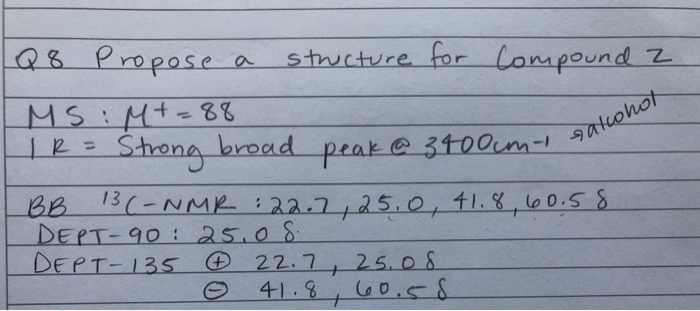 Q8 Propose a structure for Compound Z
MS : M+ = 88
IR = Strong broad peak @ 3400cm-1 → alcohol
BB 13C-NMR : 22.7, 25.0, 41.8, 60.5 δ
DEPT-90 : 25.0 δ
DEPT-135 ⊕ 22.7, 25.0 δ
⊖ 41.8, 60.5 δ